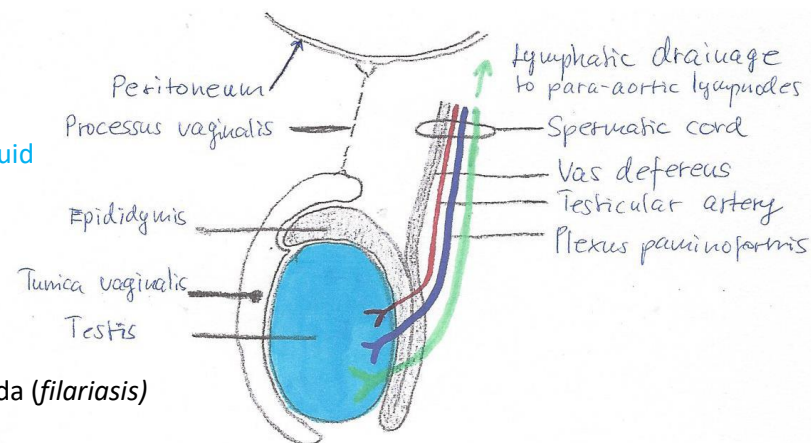 Peritoneum
Processus vaginalis
uid
Epididymis
Tunica vaginalis
Testis
da (filariasis)
Lymphatic drainage
to para-aortic lympnodes
Spermatic cord
Vas defereus
Testicular artery
Plexus paminoformis